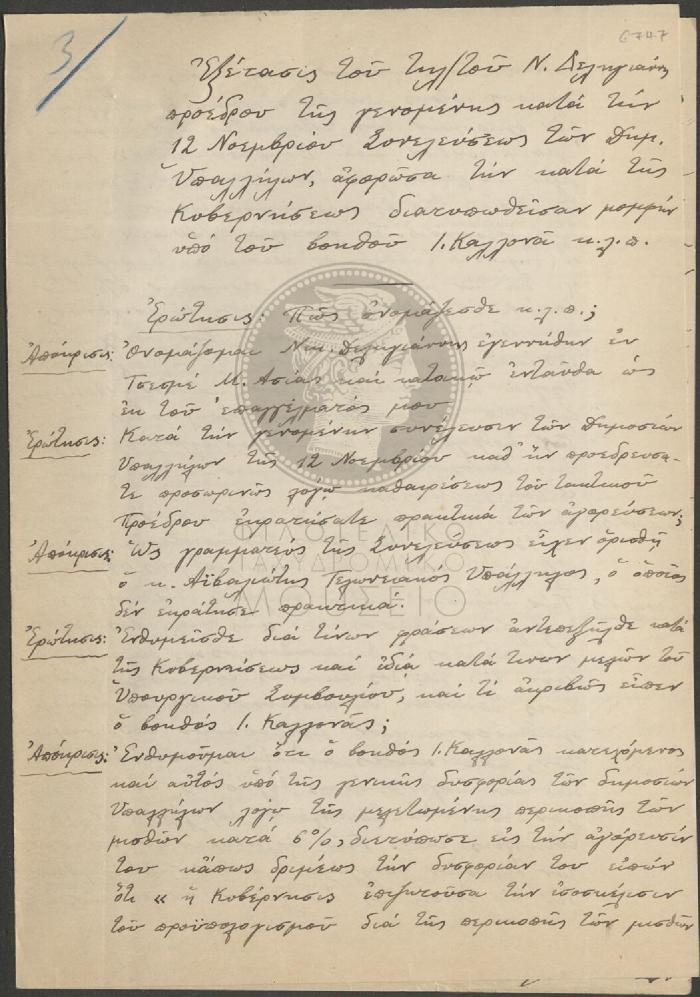 3/
6747
Ἐξέτασις τοῦ τηλ/τοῦ Ν. Δεληγιάννη
προέδρου τῆς γενομένης κατά τήν
12 Νοεμβρίου Συνελεύσεως τῶν Δημ.
Ὑπαλλήλων, ἀφορῶσα τήν κατά τῆς
Κυβερνήσεως διατυπωθεῖσαν μομφήν
ὑπό τοῦ βοηθοῦ Ι. Καλλονᾶ κ.λ.π.
Ἐρώτησις: Πῶς ὀνομάζεσθε κ.λ.π.;
Ἀπόκρισις: Ὀνομάζομαι Νικ. Δεληγιάννης ἐγεννήθην ἐν
Τσεσμέ Μ. Ἀσίας καί κατοικῶ ἐνταῦθα ὡς
ἐκ τοῦ ἐπαγγέλματός μου
Ἐρώτησις: Κατά τήν γενομένην συνέλευσιν τῶν Δημοσίων
Ὑπαλλήλων τῆς 12 Νοεμβρίου καθ' ἥν προεδρεύσα-
τε προσωρινῶς λόγῳ καθαιρέσεως τοῦ τακτικοῦ
Προέδρου ἐκρατήσατε πρακτικά τῶν ἀγορεύσεων;
Ἀπόκρισις: Ὡς γραμματεύς τῆς Συνελεύσεως εἶχεν ὁρισθῆ
ὁ κ. Αϊβαλιώτης Τελωνειακός Ὑπάλληλος, ὁ ὁποῖος
δέν ἐκράτησε πρακτικά.
Ἐρώτησις: Ἐνθυμεῖσθε διά τίνων φράσεων ἀντεπεξῆλθε κατά
τῆς Κυβερνήσεως καί ἰδίᾳ κατά τινων μελῶν τοῦ
Ὑπουργικοῦ Συμβουλίου, καί τί ἀκριβῶς εἶπεν
ὁ βοηθός Ι. Καλλονᾶς;
Ἀπόκρισις: Ἐνθυμοῦμαι ὅτι ὁ βοηθός Ι. Καλλονᾶς κατεχόμενος
καί αὐτός ὑπό τῆς γενικῆς δυσφορίας τῶν δημοσίων
Ὑπαλλήλων λόγῳ τῆς μελετωμένης περικοπῆς τῶν
μισθῶν κατά 6%, διετύπωσε εἰς τήν ἀγόρευσίν
του κάπως δριμέως τήν δυσφορίαν του εἰπών
ὅτι « ἡ Κυβέρνησις ἐπιζητοῦσα τήν ἰσοσκέλισιν
τοῦ προϋπολογισμοῦ διά τῆς περικοπῆς τῶν μισθῶν
ΦΙΛΟΤΕΛΙΚΟ
ΤΑΧΥΔΡΟΜΙΚΟ
ΜΟΥΣΕΙΟ